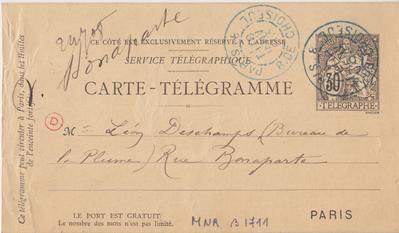 24708
Bonaparte
CE CÔTÉ EST EXCLUSIVEMENT RÉSERVÉ À L'ADRESSE
SERVICE TÉLÉGRAPHIQUE
CARTE-TÉLÉGRAMME
30
TÉLÉGRAPHE
PARIS
R. DE CHOISEUL
Ce télégramme peut circuler à Paris, dans les limites
de l'enceinte fortifiée.
D
M Léon Deschamps (Bureau de
la Plume) Rue Bonaparte
LE PORT EST GRATUIT.
Le nombre des mots n'est pas limité.
MNR B 1711
PARIS